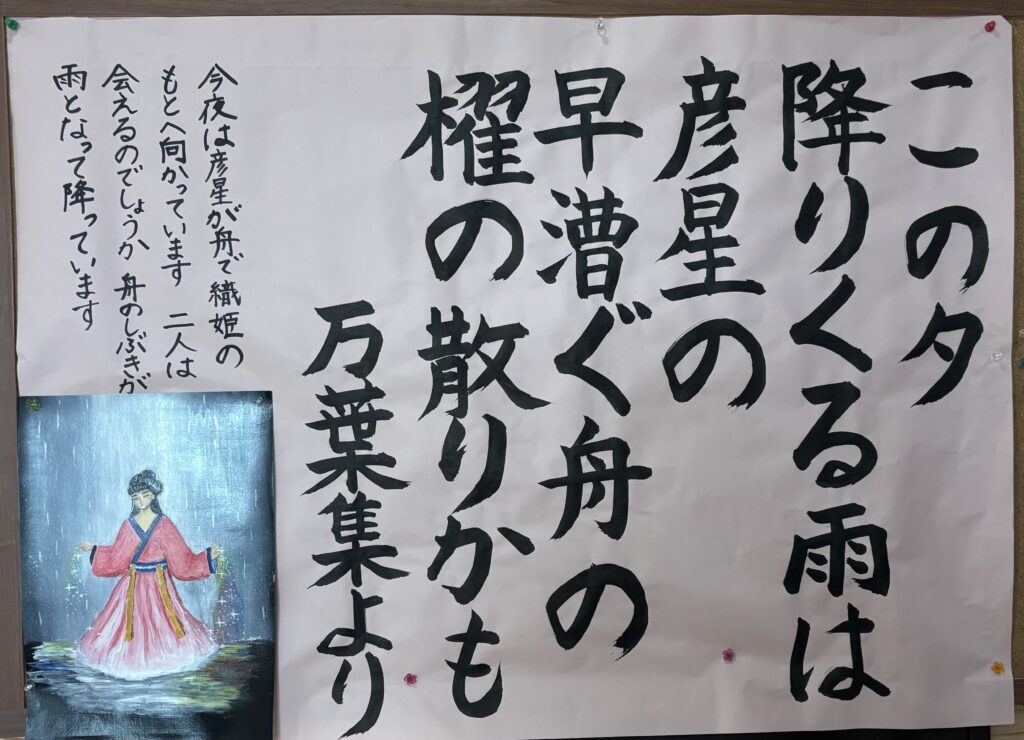 この夕
降りくる雨は
彦星の
早漕ぐ舟の
櫂の散りかも
万葉集より
今夜は彦星が舟で織姫の
もとへ向かっています 二人は
会えるのでしょうか 舟のしぶきが
雨となって降っています